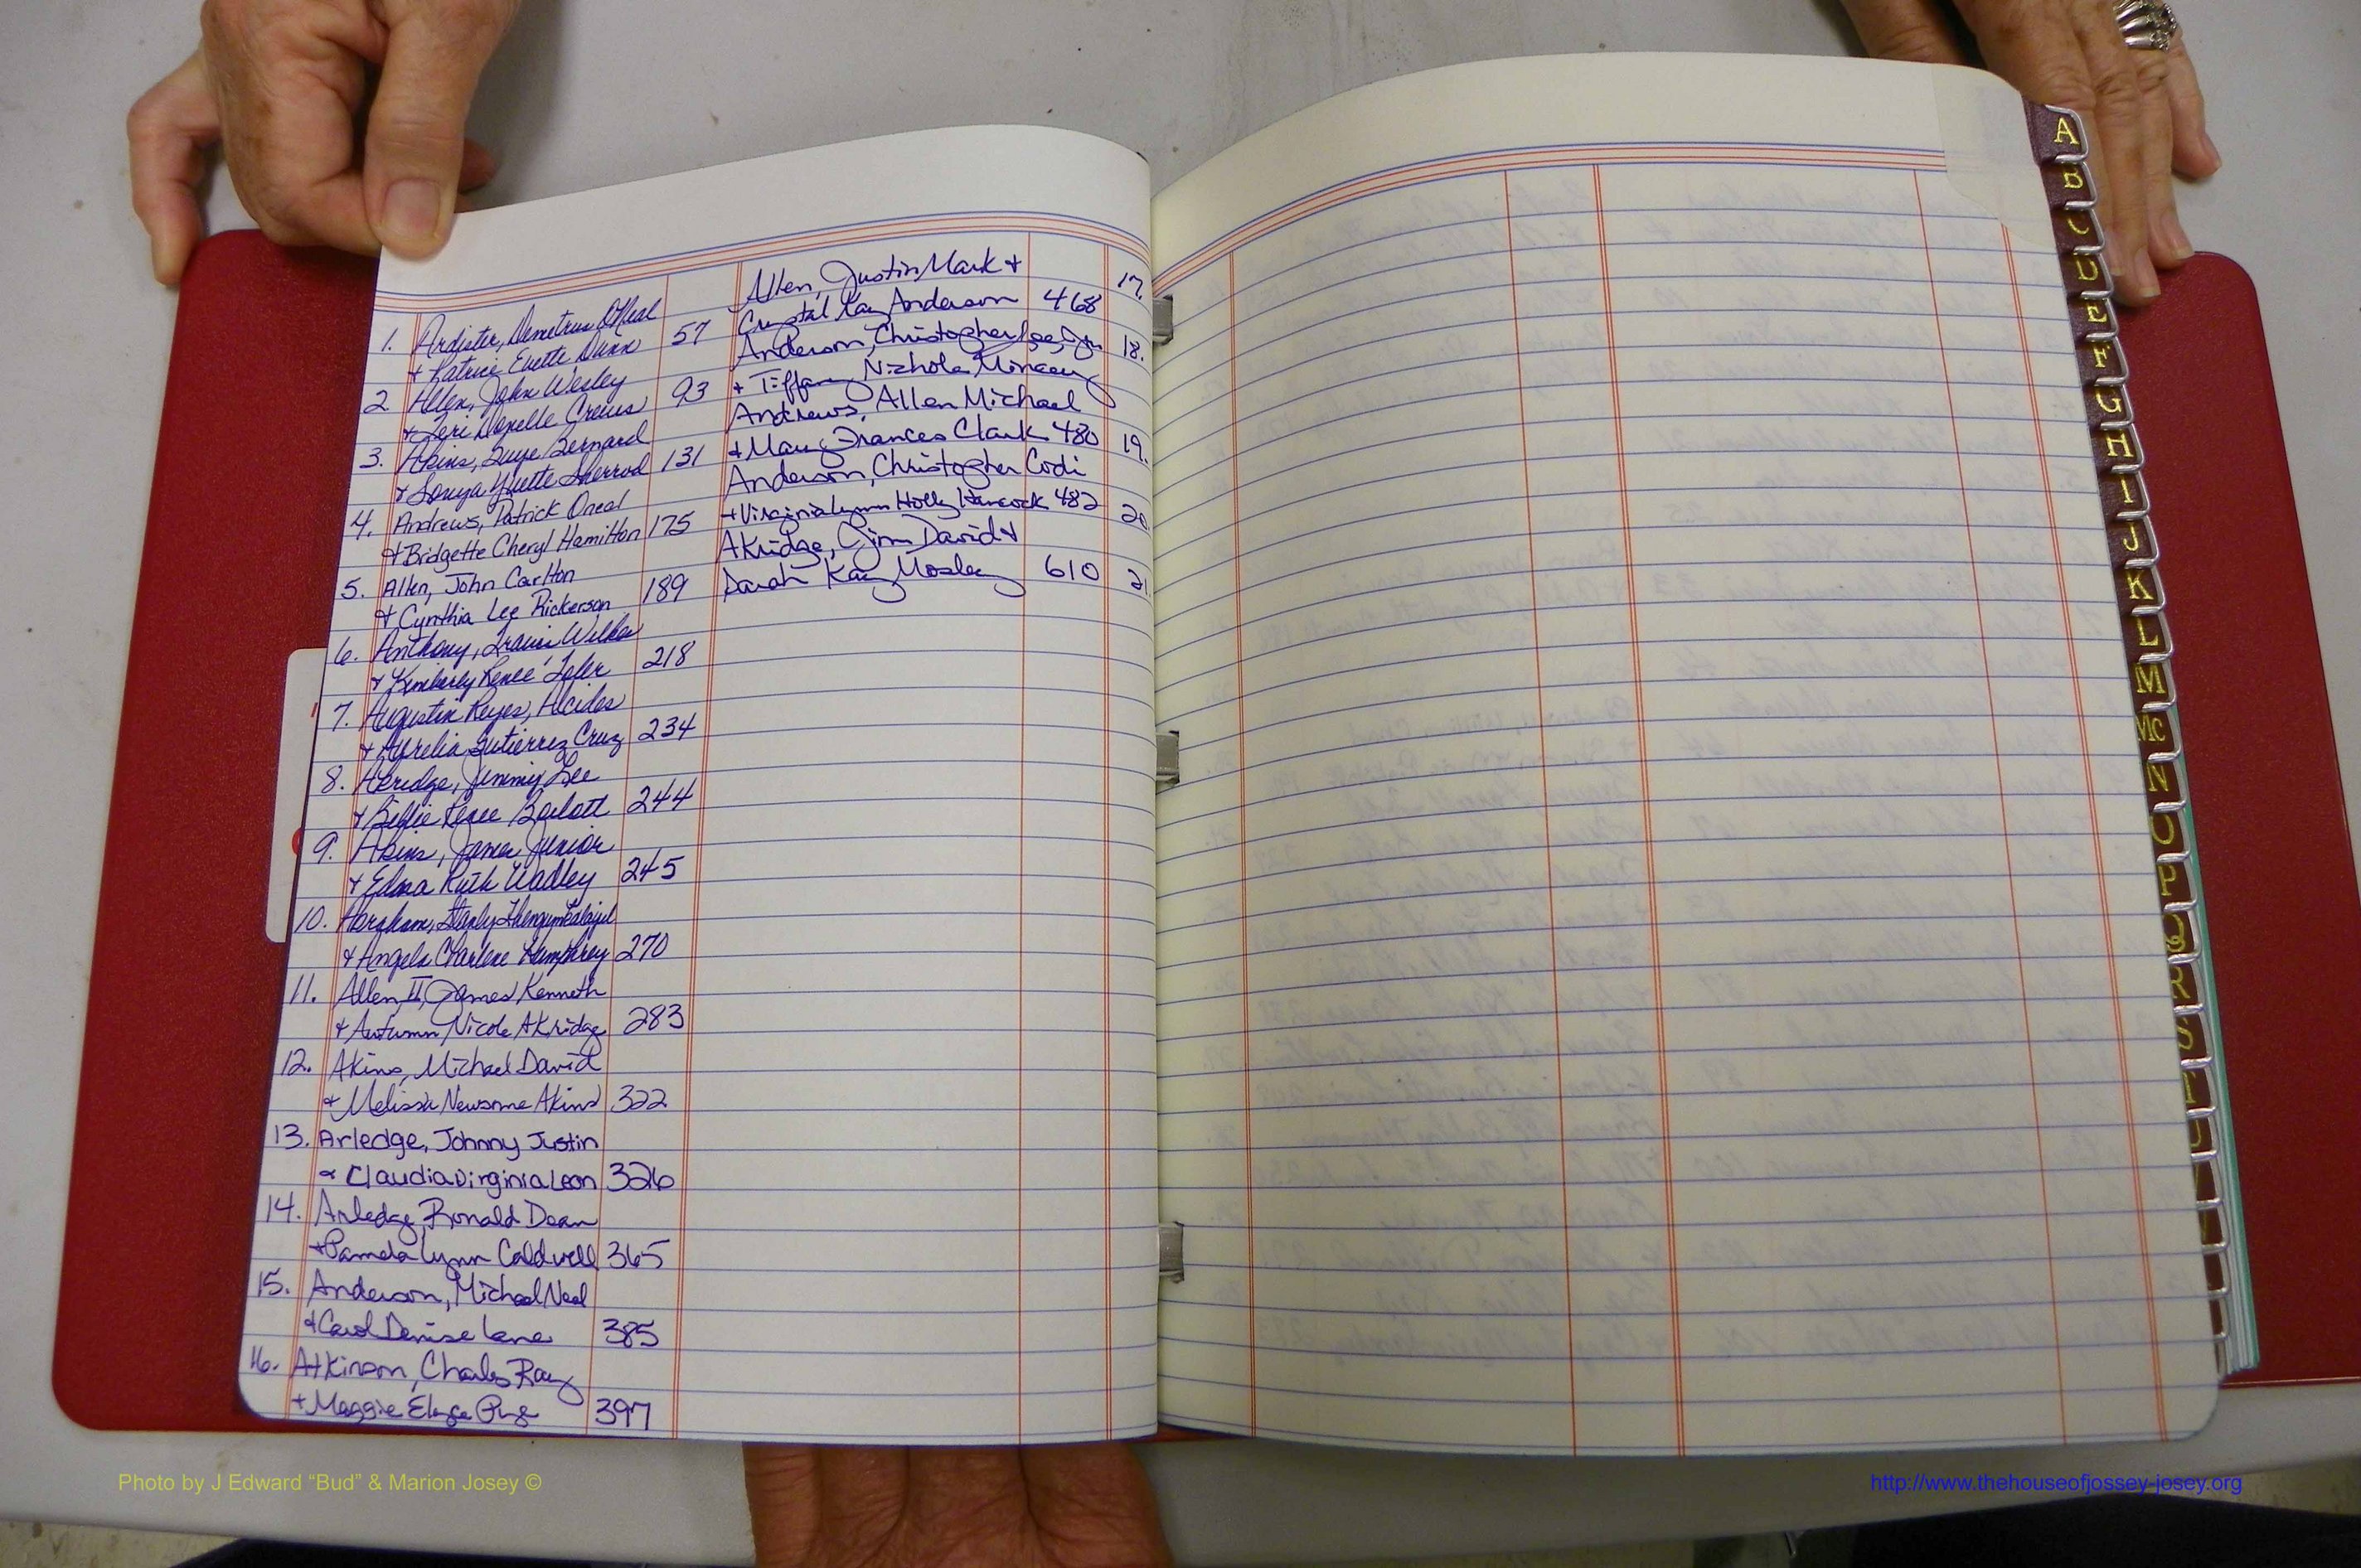 1. Ardister, Demetrus O'Neal
+ Patrice Evette Dunn 57
2 Allen, John Wesley
+ Teri Danelle Crews 93
3. Akins, Bernard
+ Sonya Yvette Sherrod 131
4. Andrews, Patrick Oneal
+ Bridgette Cheryl Hamilton 175
5. Allen, John Carlton
+ Cynthia Lee Rickerson 189
6. Anthony, Travis
+ Kimberly Renee' 218
7. Augustin Reyes, Alcides
+ Aurelia Gutierrez Cruz 234
8. Jimmy Lee
+ Billie Renee 244
9. Akins, James Junior
+ Edna Ruth Wadley 245
10. Abraham,
+ Angela Charlene Humphrey 270
11. Allen, II, James Kenneth
+ Autumn Nicole Akridge 283
12. Akins, Michael David
+ Melissa Newsome Akins 322
13. Arledge, Johnny Justin
& Claudia Virginia Leon 326
14. Arledge, Ronald Dean
+ Pamela Lynn Caldwell 365
15. Anderson, Michael Neal
+ Carol Denise Lane 385
16. Atkinson, Charles Ray
+ Maggie 397
Allen, Justin Mark + 17.
Crystal Kay Anderson 468
Anderson, Christopher Lee, Jr. 18.
+ Tiffany Nichole Mincey
Andrews, Allen Michael
+ Mary Frances Clark 480 19.
Anderson, Christopher Codi
+ Virginia Lynn Holly Hancock 482 20.
Akridge, Jim David +
Sarah Kay Mosley 610 21.
A
B
C
D
E
F
G
H
I
J
K
L
M
MC
N
O
P
Q
R
S
T
U
Photo by J Edward “Bud” & Marion Josey ©
http://www.thehouseofjossey-josey.org